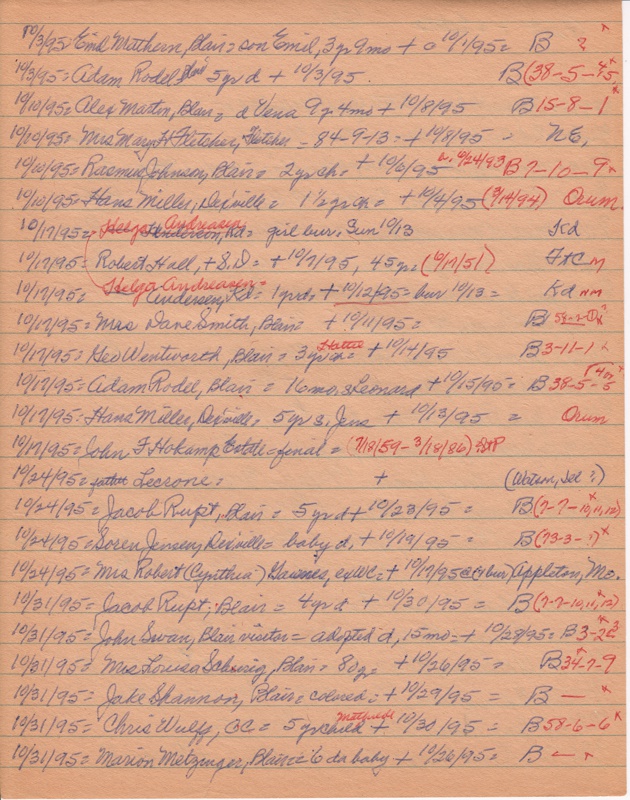 10/3/95= Emil Matthern, Blair= son Emil, 3yr 9mo + a 10/1/95= B ? x
10/3/95= Adam Rodel 5yr d + 10/3/95. B(38-5-4,5 x
10/10/95= Alex Marton, Blair= d Vena 9y 4mo + 10/8/95 B 15-8-1 x
10/10/95= Mrs Mary H Fletcher, Fletcher = 84-9-13= + 10/8/95 = NE,
10/10/95= Rasmus Johnson, Blair= 2yr ch= + 10/6/95 6/24/93 B7-10-9 x
10/10/95= Hans Miller, Dexville= 1 1/2 yr ch= + 10/4/95 (3/14/94) Orum.
10/17/95= Helga Andreasen Henderson, Kd= girl bur= Sun 10/13 Kd
10/17/95= Robert Hall, + S.D= + 10/7/95, 45yr= (10/17/51) FtC M
10/17/95= Helga Andreasen= Andersen, Kd= 1yr d= + 10/12/95= bur 10/13= Kd NM
10/17/95= Mrs Dane Smith, Blair= + 10/11/95= B
10/17/95= Geo Wentworth, Blair= 3yr ch= Hattie + 10/14/95 B3-11-1 x
10/17/95= Adam Rodel, Blair = 16mo, s Leonard + 10/15/95= B38-5-5
10/17/95= Hans Miller, Dexville= 5yr s, Jens + 10/13/95 = Orum
10/17/95= John F Hokamp Estate=final= (7/18/59-3/18/86) StP
10/24/95= father Lecrone= + (Watson, Jed ?)
10/24/95= Jacob Rupt, Blair = 5yr d + 10/23/95= B(7-7-10,11,12) x
10/24/95= Soren Jensen, Dexville= baby d, + 10/19/95= B(73-3-?) x
10/24/95= Mrs Robert (Cynthia) Gaines, exWC= + 10/17/95 (+ bur) Appleton, Mo.
10/31/95= Jacob Rupt; Blair = 4yr d + 10/30/95 = B(7-7-10,11,12) x
10/31/95= John Swan, Blair visitor= adopted d, 15mo= + 10/28/95= B3-2
10/31/95= Mrs Louisa Scheurig, Blair= 80y= + 10/26/95= B34-7-9
10/31/95= Jake Shannon, Blair= colored= + 10/29/95= B — x
10/31/95= Chris Wulff, BC= 5yr child Mathield + 10/30/95= B58-6-6 x
10/31/95= Marion Metzinger, Blair= 6 da baby + 10/26/95= B — x